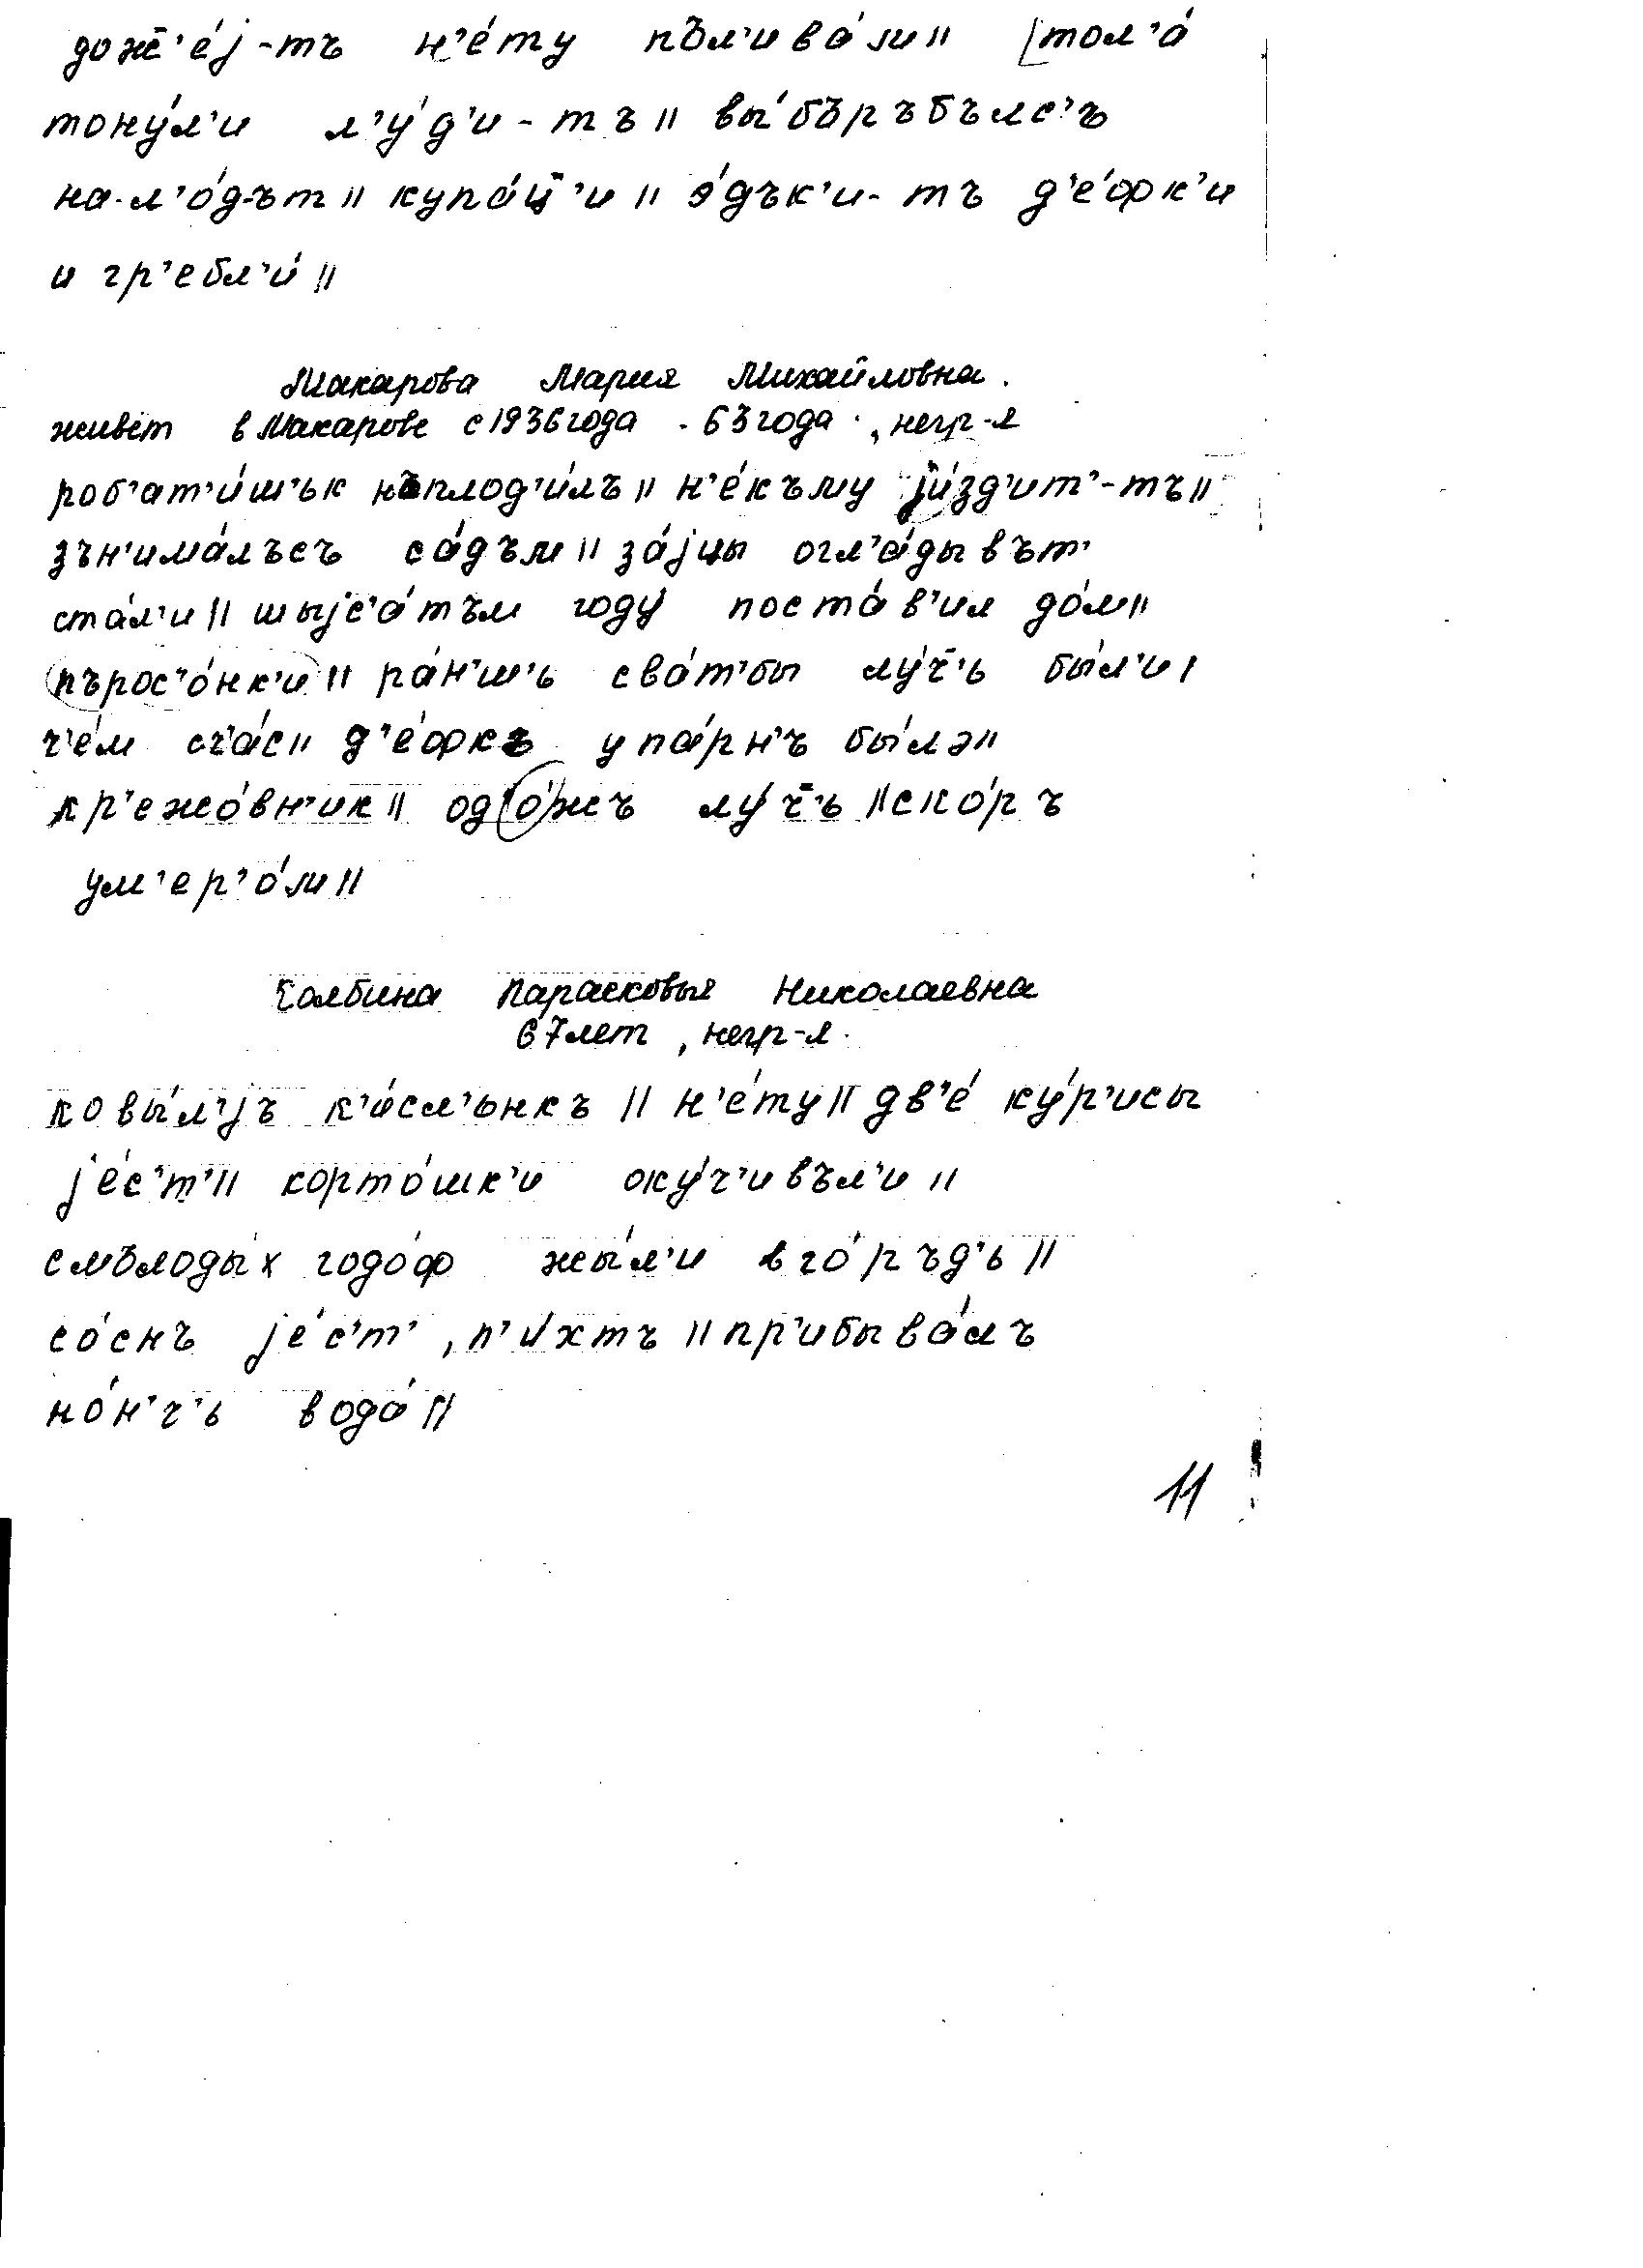 дож̅'éј-тъ н'éту пъл'ивáли || [тол'á
тонýл'и л'ýд'и-тъ || вы́бъръбълс'ъ
на-л'óд-ът || купáц̅'и || э́дък'и-тъ д'éфк'и
и гр'ебл'и́ ||
Макарова Мария Михайловна.
живет в Макарове с 1936 года. 63 года, негр-я
роб'ат'и́ш'ьк нъплод'и́лъ || н'éкъму jи́зд'ит'-тъ ||
зън'имáлъсъ сáдъм || зáјцы огл'áдывът'
стáл'и || шыјс'áтъм году́ постáв'ил дóм ||
пърос'óнк'и || рáн'ш'ь свáт'бы лу́ч̅'ь бы́л'и |
ч'éм сч'áс || д'éфкъ упáрн'ъ былá ||
кр'ежóвн'ик || одóжъ лу́ч̅'ь || скóръ
ум'ер'óли ||
Голбина Парасковья Николаевна
67 лет, негр-я.
ковы́л'јъ к'и́сл'ьнкъ || н'éту || дв'é ку́р'исы
јéс'т' || кортóшк'и оку́ч'ивъл'и ||
смълоды́х годóф жы́л'и вгóръд'ь ||
сóснъ јéс'т', п'и́хтъ || пр'ибывáлъ
нóн'ч'ь водá ||
11